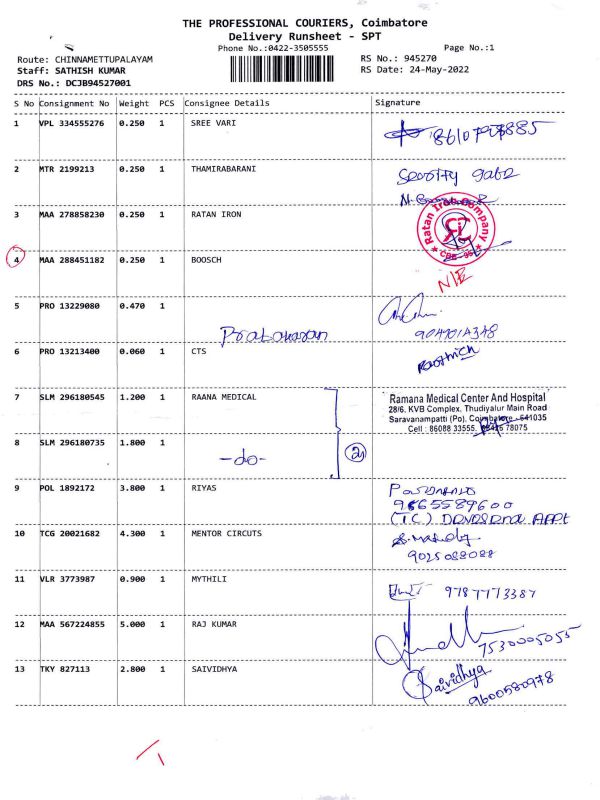 THE PROFESSIONAL COURIERS, Coimbatore
Delivery Runsheet - SPT
Phone No.:0422-3505555 Page No.:1
Route: CHINNAMETTUPALAYAM RS No.: 945270
Staff: SATHISH KUMAR RS Date: 24-May-2022
DRS No.: DCJB94527001
S No Consignment No Weight PCS Consignee Details Signature
1 VPL 334555276 0.250 1 SREE VARI
2 MTR 2199213 0.250 1 THAMIRABARANI
3 MAA 278858230 0.250 1 RATAN IRON
Ratan Iron Company
CBE-35
4 MAA 288451182 0.250 1 BOOSCH
N/E
5 PRO 13229080 0.470 1
6 PRO 13213400 0.060 1 CTS
7 SLM 296180545 1.200 1 RAANA MEDICAL
Ramana Medical Center And Hospital
28/6, KVB Complex, Thudiyalur Main Road
Saravanampatti (Po), Coimbatore - 641035
Cell : 86088 33555, 78075
8 SLM 296180735 1.800 1 -do- 2
9 POL 1892172 3.800 1 RIYAS
9865589600
10 TCG 20021682 4.300 1 MENTOR CIRCUTS
9025088088
11 VLR 3773987 0.900 1 MYTHILI 9787773387
12 MAA 567224855 5.000 1 RAJ KUMAR
7530005055
13 TKY 827113 2.800 1 SAIVIDHYA Saividhya
9600580978